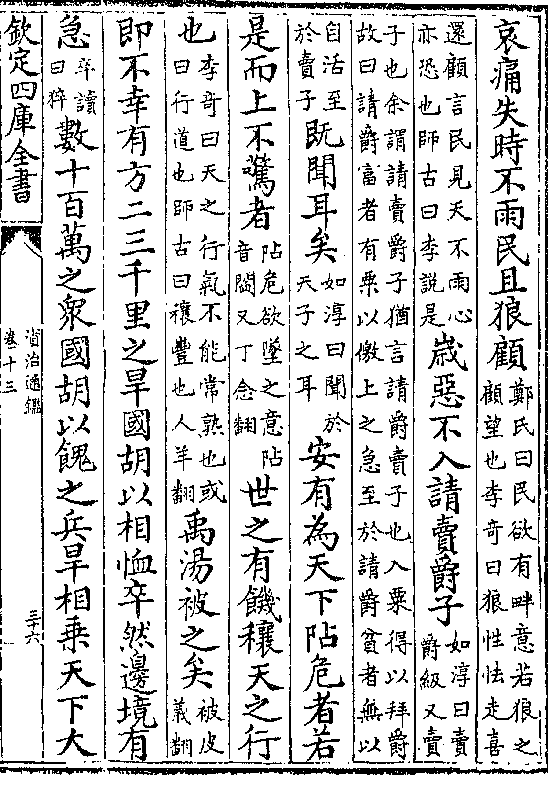 哀痛失時不雨民且狼顧鄭氏曰民欲有畔意若狼之顧望也李奇曰狼性怯走喜
還顧言民見天不雨心亦恐也師古曰李說是歲惡不入請賣爵子如淳曰賣爵級又賣
子也余謂請賣爵子猶言請爵賣子也入粟得以拜爵故曰請爵富者有粟以徼上之急至於請爵貧者無以
自活至於賣子既聞耳矣如淳曰聞於天子之耳安有為天下阽危者若
是而上不驚者阽危欲墜之意阽音閻又丁念翻世之有饑穰天之行
也李奇曰天之行氣不能常熟也或曰行道也師古曰穰豐也人羊翻禹湯被之矣被皮義翻
即不幸有方二三千里之旱國胡以相恤卒然邊境有
急卒讀曰猝數十百萬之衆國胡以餽之兵旱相乗天下大
欽定四庫全書
資治通鑑
卷十三
三十六